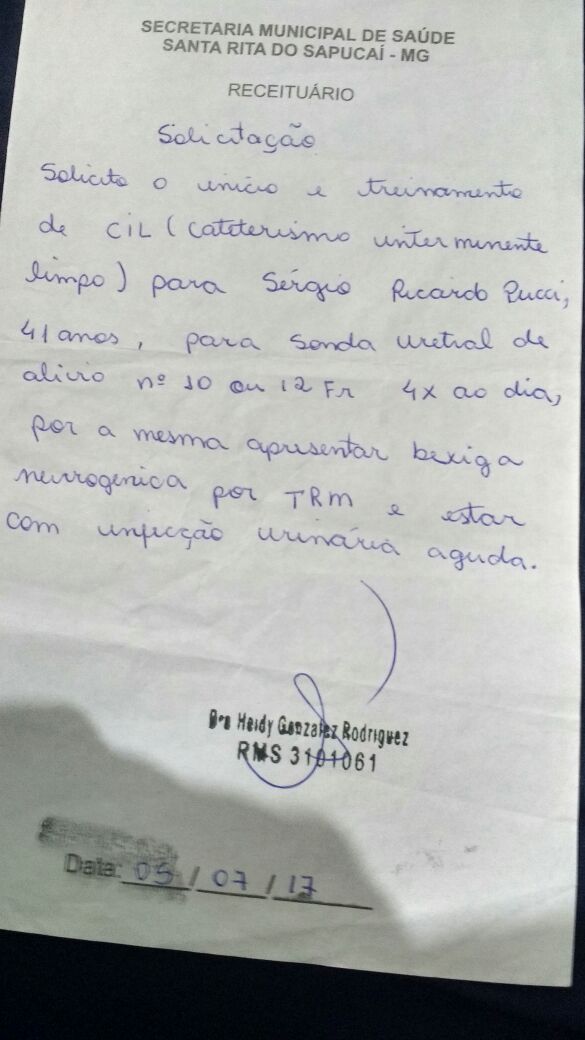 SECRETARIA MUNICIPAL DE SAÚDE
SANTA RITA DO SAPUCAÍ - MG
RECEITUÁRIO
Solicitação
Solicito o inicio e treinamento
de CIL (cateterismo interminente
limpo) para Sérgio Ricardo Pucci,
41 anos, para sonda uretral de
alivio nº 10 ou 12 Fr 4x ao dia,
por a mesma apresentar bexiga
neurogenica por TRM e estar
com infecção urinária aguda.
Dra Heidy Gonzalez Rodriguez
RMS 3101061
Data: 05 / 07 / 17